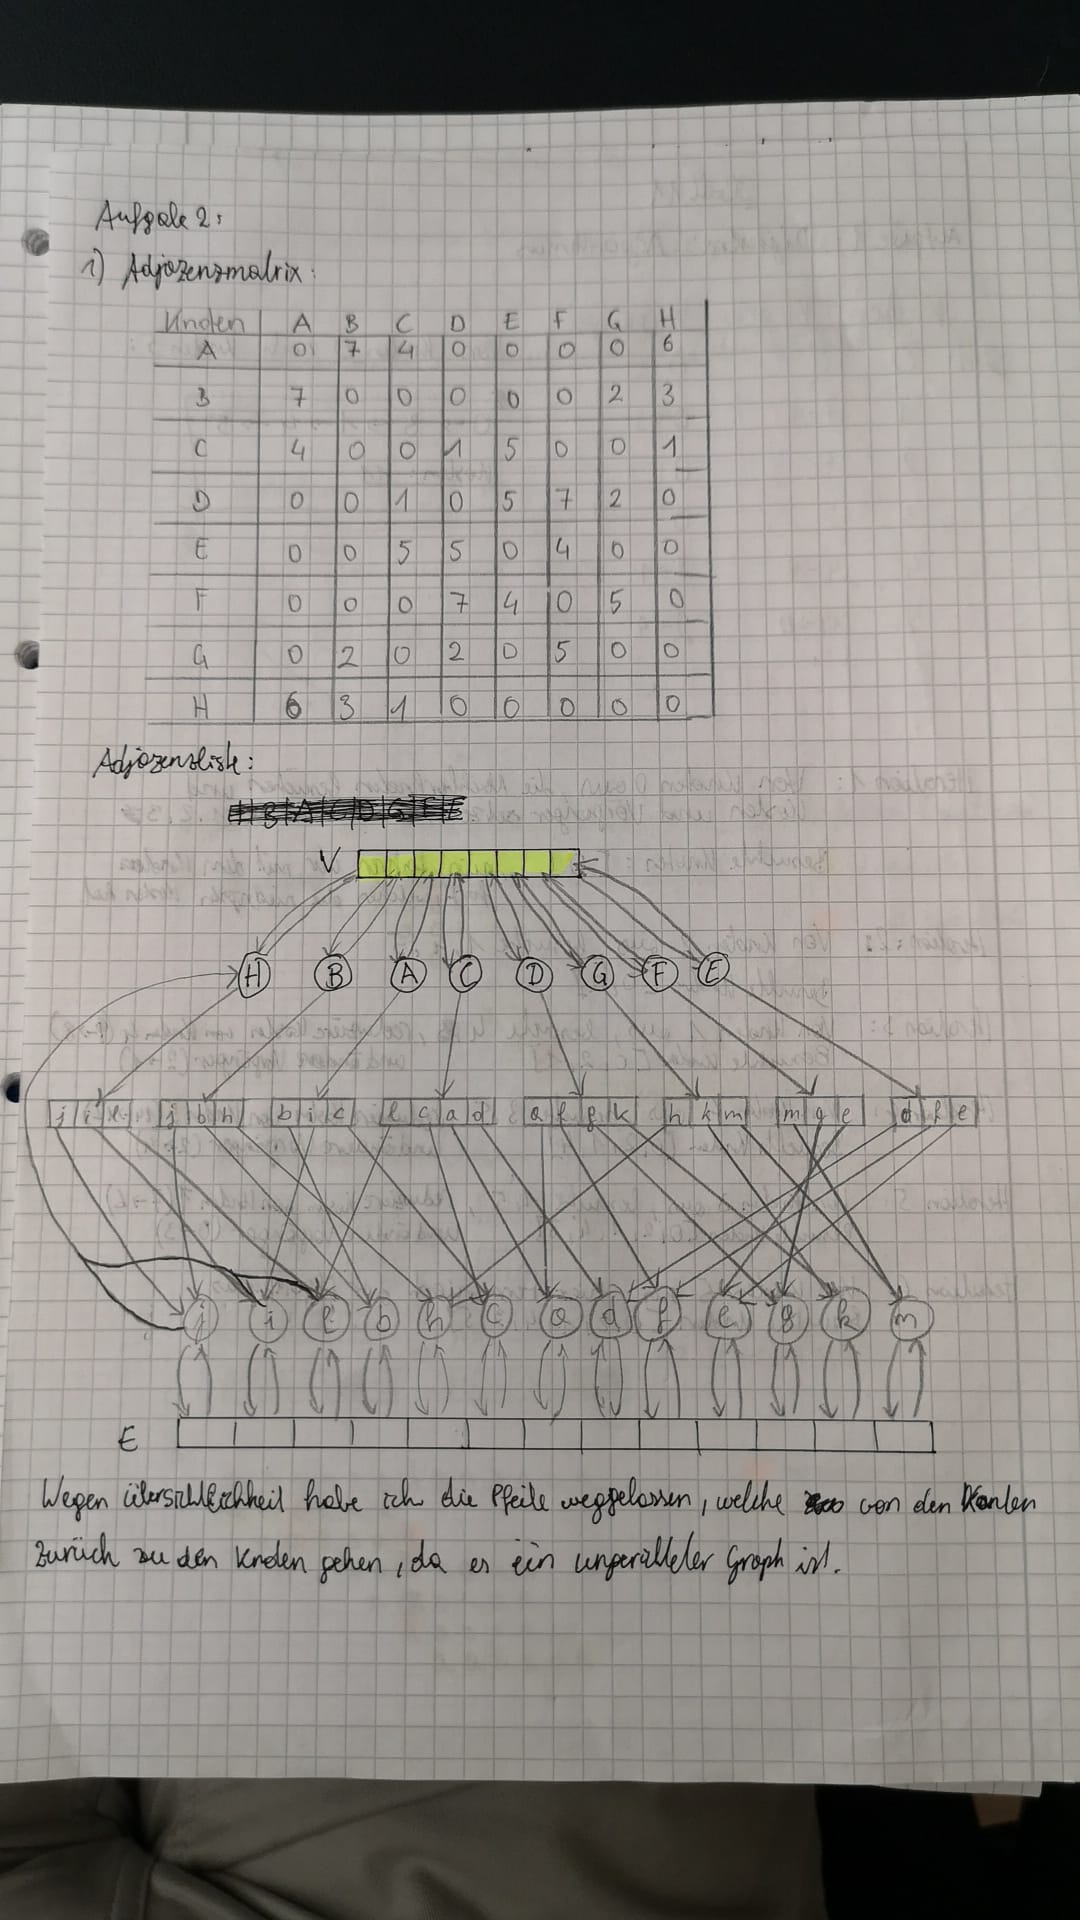 Aufgabe 2:
1) Adjazenzmatrix:
Knoten A B C D E F G H
A 0 7 4 0 0 0 0 6
B 7 0 0 0 0 0 2 3
C 4 0 0 1 5 0 0 1
D 0 0 1 0 5 7 2 0
E 0 0 5 5 0 4 0 0
F 0 0 0 7 4 0 5 0
G 0 2 0 2 0 5 0 0
H 6 3 1 0 0 0 0 0
Adjazensliste:
V
H B A C D G F E
j i l j b h b i c l c a d a f g k h k m m g e d f e
j i l b h c a d f e g k m
E
Wegen übersichtlichkeit habe ich die Pfeile weggelassen, welche von den Kanten
zurück zu den Knoten gehen, da es ein ungerichteter Graph ist.